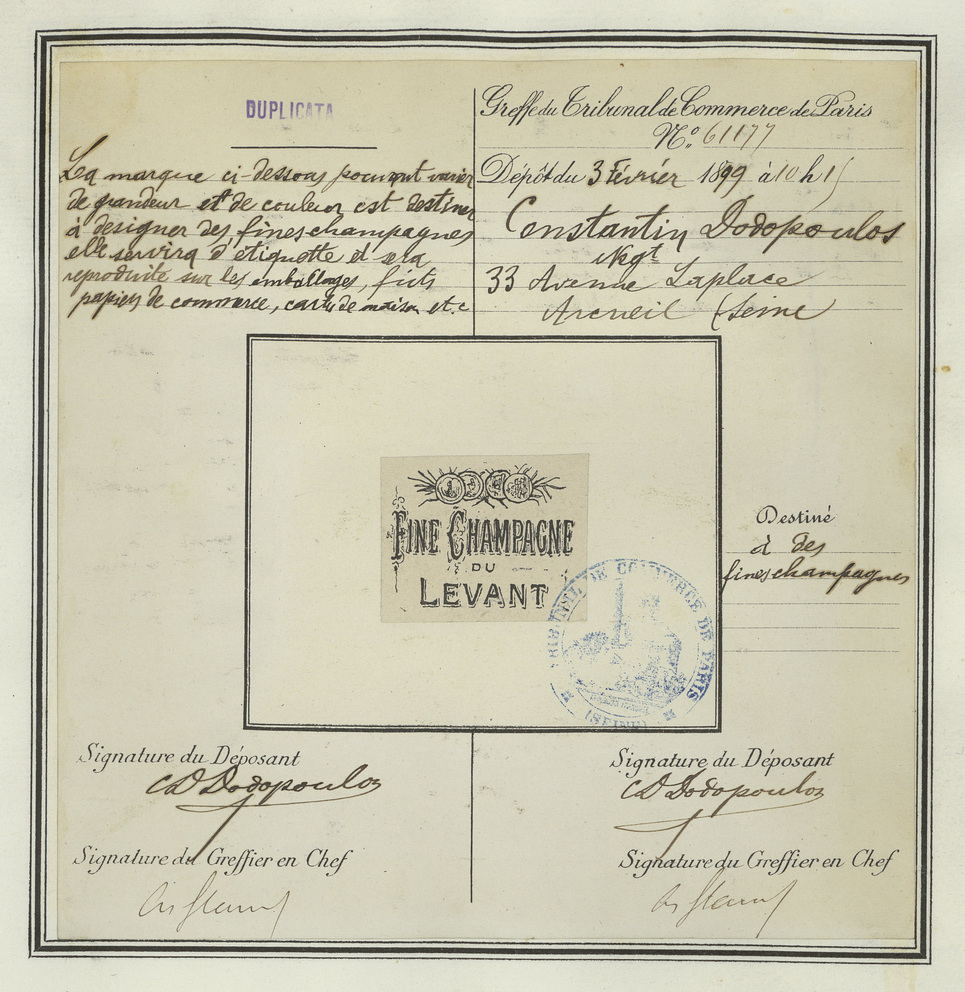 DUPLICATA
La marque ci-dessous pouvant varier
de grandeur et de couleur est destinée
à designer des fines champagnes
elle servira d'étiquette et sera
reproduite sur les emballages, fûts
papiers de commerce, cartes de maison etc
Greffe du Tribunal de Commerce de Paris
No. 61177
Dépôt du 3 Février 1899 à 10 h 1/
Constantin Dodopoulos
Negt
33 Avenue Laplace
Arcueil (Seine
FINE CHAMPAGNE
DU
LEVANT
TRIBUNAL DE COMMERCE DE PARIS
(SEINE)
Destiné
à des
fines champagnes
Signature du Déposant
CD Dodopoulos
Signature du Greffier en Chef
Signature du Déposant
CD Dodopoulos
Signature du Greffier en Chef